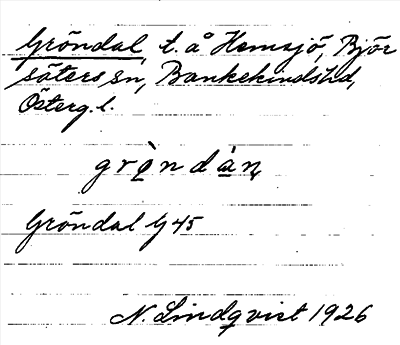 Gröndal, t. å Hemsjö, Björ
säters sn, Bankekindshd,
Österg. l.
grö̀ndán
Gröndal G 45
N. Lindqvist 1926